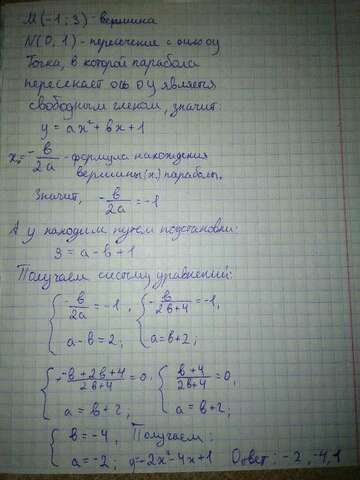 М(-1; 3) - вершина
N(0, 1) - пересечение с осью оу
Точка, в которой парабола
пересекает ось оу является
свободным членом, значит:
y = ax² + bx + 1
x₀ = -b/2a - формула нахождения
вершины (x₀) параболы.
Значит, -b/2a = -1
А y находим путем подстановки:
3 = a - b + 1
Получаем систему уравнений:
{ -b/2a = -1, { -b/2b+4 = -1,
a - b = 2; a = b + 2;
{ -b + 2b + 4/2b+4 = 0 { b+4/2b+4 = 0,
a = b + 2; a = b + 2;
{ b = -4, Получаем:
a = -2; y = -2x² - 4x + 1 Ответ: -2, -4, 1